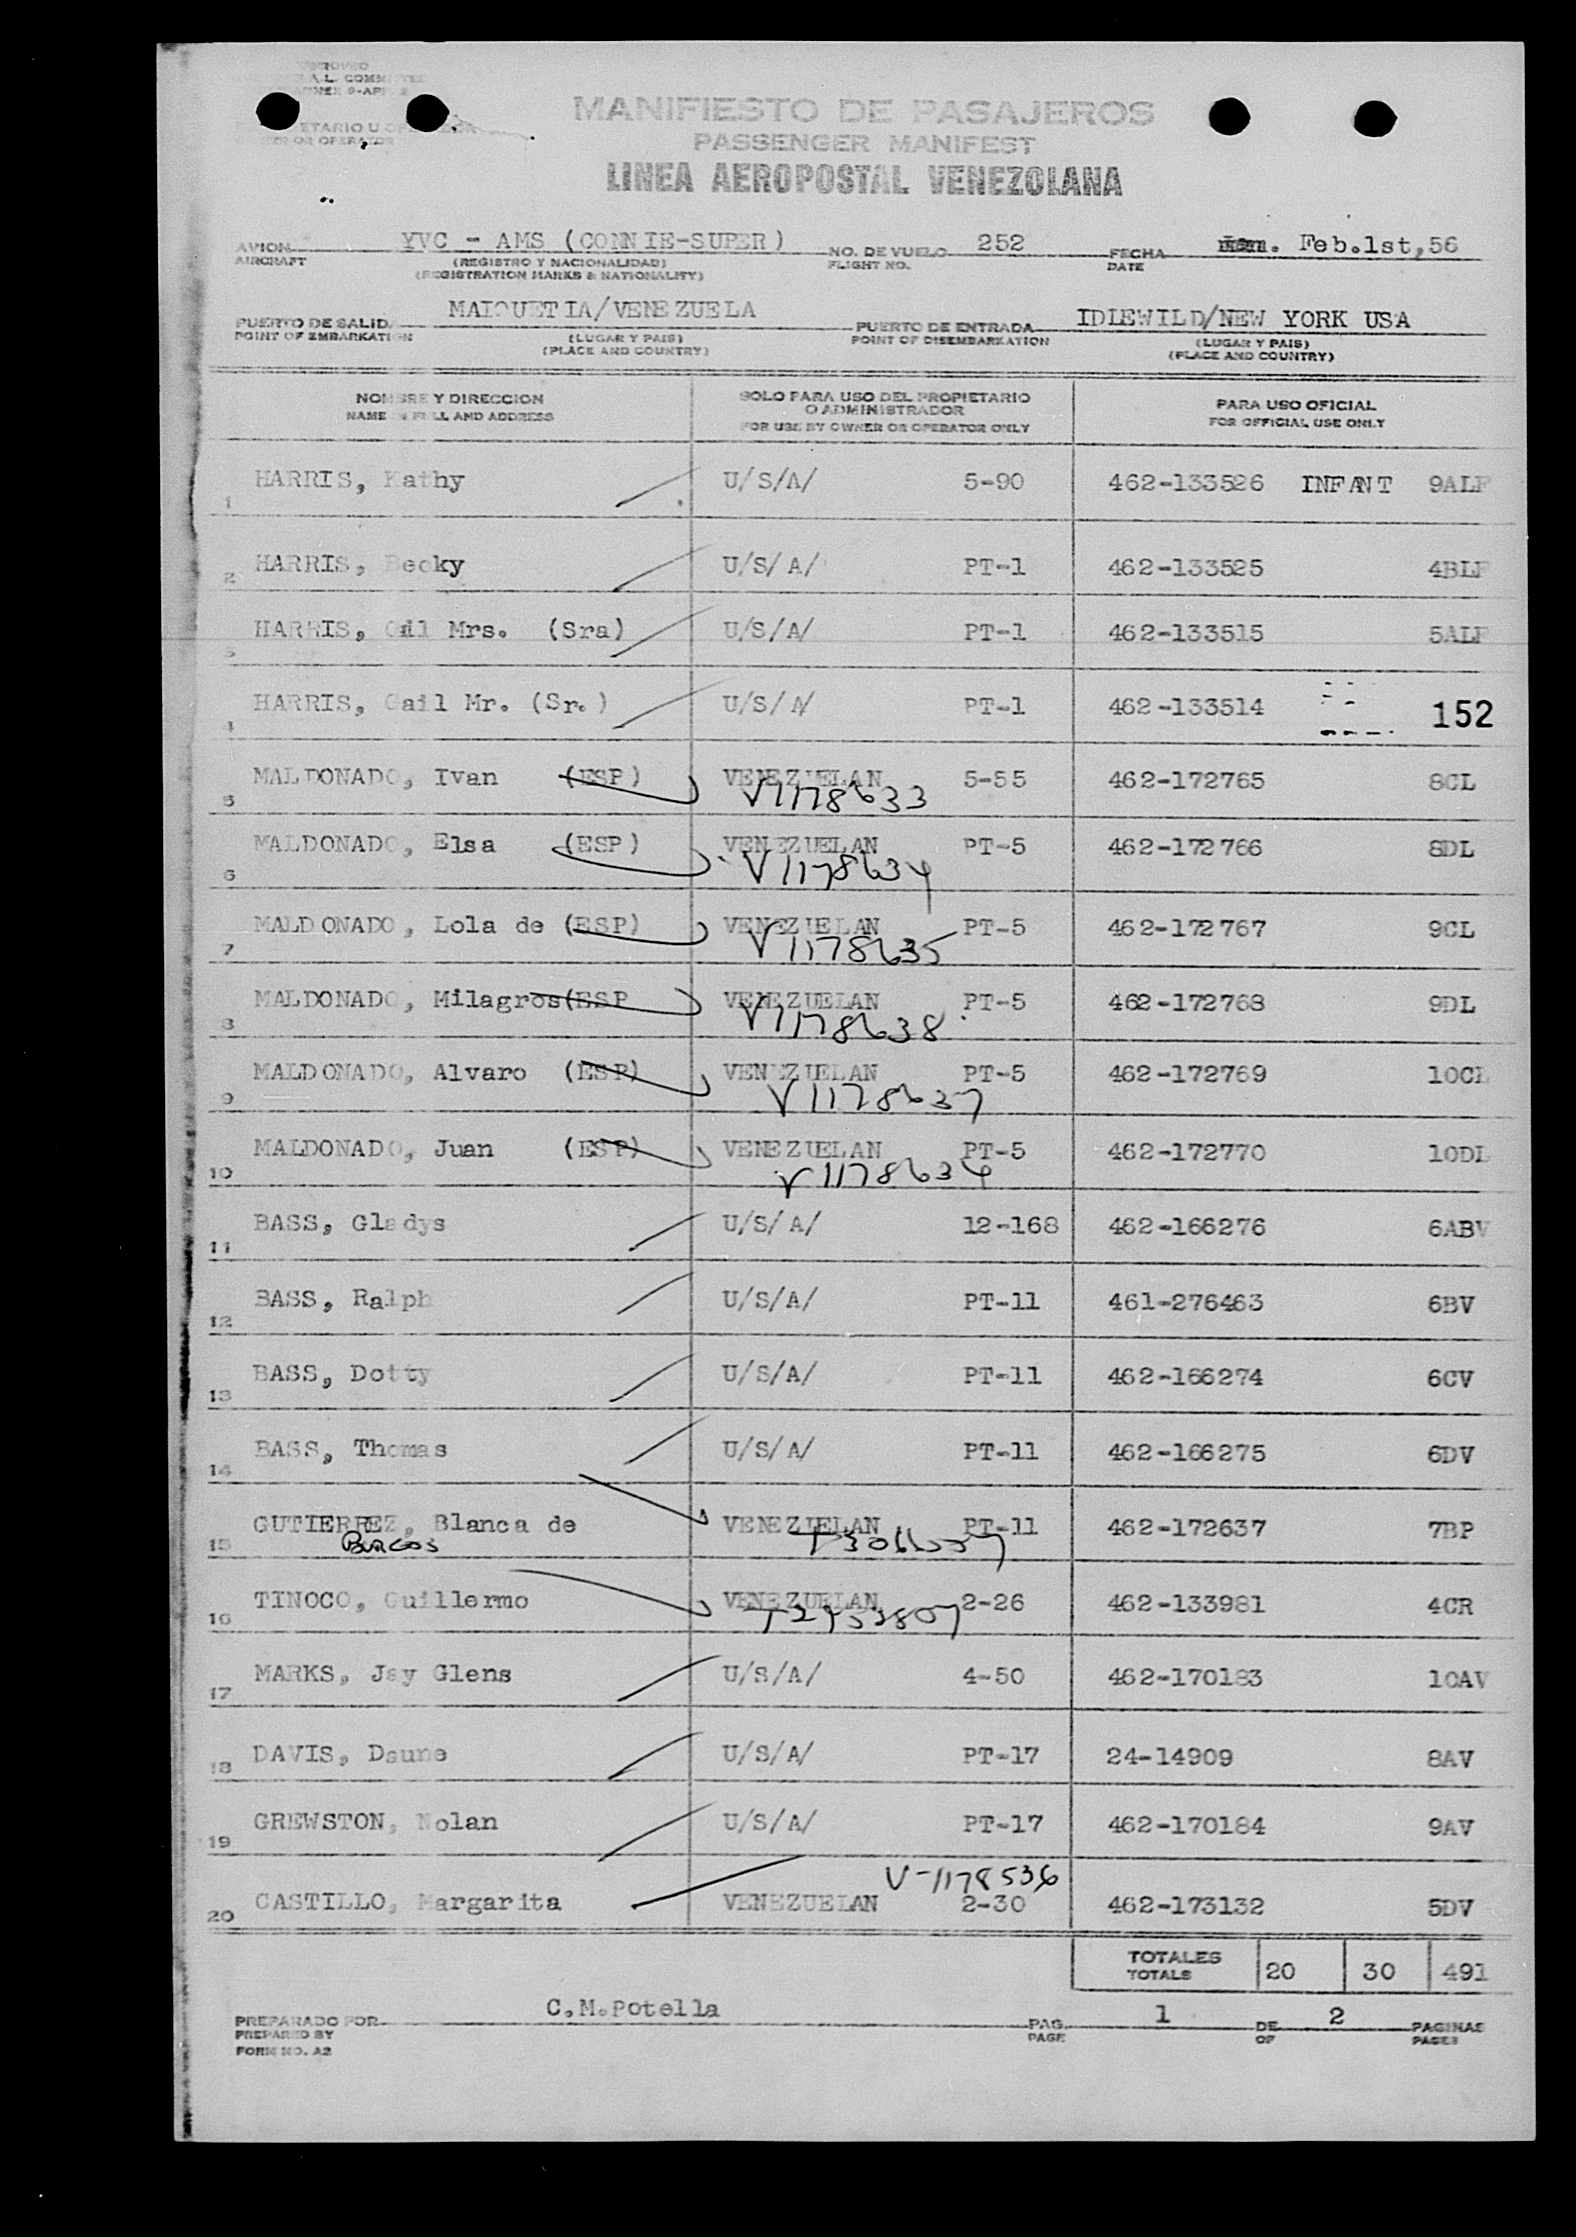 MANIFIESTO DE PASAJEROS
PASSENGER MANIFEST
LINEA AEROPOSTAL VENEZOLANA
AVION AIRCRAFT YVC - AMS (CONNIE-SUPER) NO. DE VUELO FLIGHT NO. 252 FECHA DATE Feb.1st,56
(REGISTRO Y NACIONALIDAD)
(REGISTRATION MARKS & NATIONALITY)
PUERTO DE SALIDA POINT OF EMBARKATION MAIQUETIA/VENEZUELA PUERTO DE ENTRADA POINT OF DISEMBARKATION IDLEWILD/NEW YORK USA
(LUGAR Y PAIS) (LUGAR Y PAIS)
(PLACE AND COUNTRY) (PLACE AND COUNTRY)
NOMBRE Y DIRECCION SOLO PARA USO DEL PROPIETARIO O ADMINISTRADOR PARA USO OFICIAL
NAME IN FULL AND ADDRESS FOR USE BY OWNER OR OPERATOR ONLY FOR OFFICIAL USE ONLY
1 HARRIS, Kathy U/S/A/ 5-90 462-133526 INFANT 9ALF
2 HARRIS, Becky U/S/A/ PT-1 462-133525 4BLF
3 HARRIS, Mrs. (Sra) U/S/A/ PT-1 462-133515 5ALF
4 HARRIS, Gail Mr. (Sr.) U/S/A/ PT-1 462-133514 152
5 MALDONADO, Ivan (ESP) VENEZUELAN 5-55 462-172765 8CL
V1178633
6 MALDONADO, Elsa (ESP) VENEZUELAN PT-5 462-172766 8DL
V1178634
7 MALDONADO, Lola de (ESP) VENEZUELAN PT-5 462-172767 9CL
V1178635
8 MALDONADO, Milagros(ESP VENEZUELAN PT-5 462-172768 9DL
V1178638
9 MALDONADO, Alvaro (ESP) VENEZUELAN PT-5 462-172769 10CL
V1178637
10 MALDONADO, Juan (ESP) VENEZUELAN PT-5 462-172770 10DL
V1178636
11 BASS, Gladys U/S/A/ 12-168 462-166276 6ABV
12 BASS, Ralph U/S/A/ PT-11 461-276463 6BV
13 BASS, Dotty U/S/A/ PT-11 462-166274 6CV
14 BASS, Thomas U/S/A/ PT-11 462-166275 6DV
15 GUTIERREZ, Blanca de VENEZUELAN PT-11 462-172637 7BP
BURGOS
16 TINOCO, Guillermo VENEZUELAN 2-26 462-133981 4CR
17 MARKS, Jay Glens U/S/A/ 4-50 462-170183 10AV
18 DAVIS, Daune U/S/A/ PT-17 24-14909 8AV
19 GREWSTON, Nolan U/S/A/ PT-17 462-170184 9AV
V-1178536
20 CASTILLO, Margarita VENEZUELAN 2-30 462-173132 5DV
TOTALES TOTALS 20 30 491
PREPARADO POR PREPARED BY C.M.Potella PAG. PAGE 1 DE OF 2 PAGINAS PAGES
FORM NO. A2